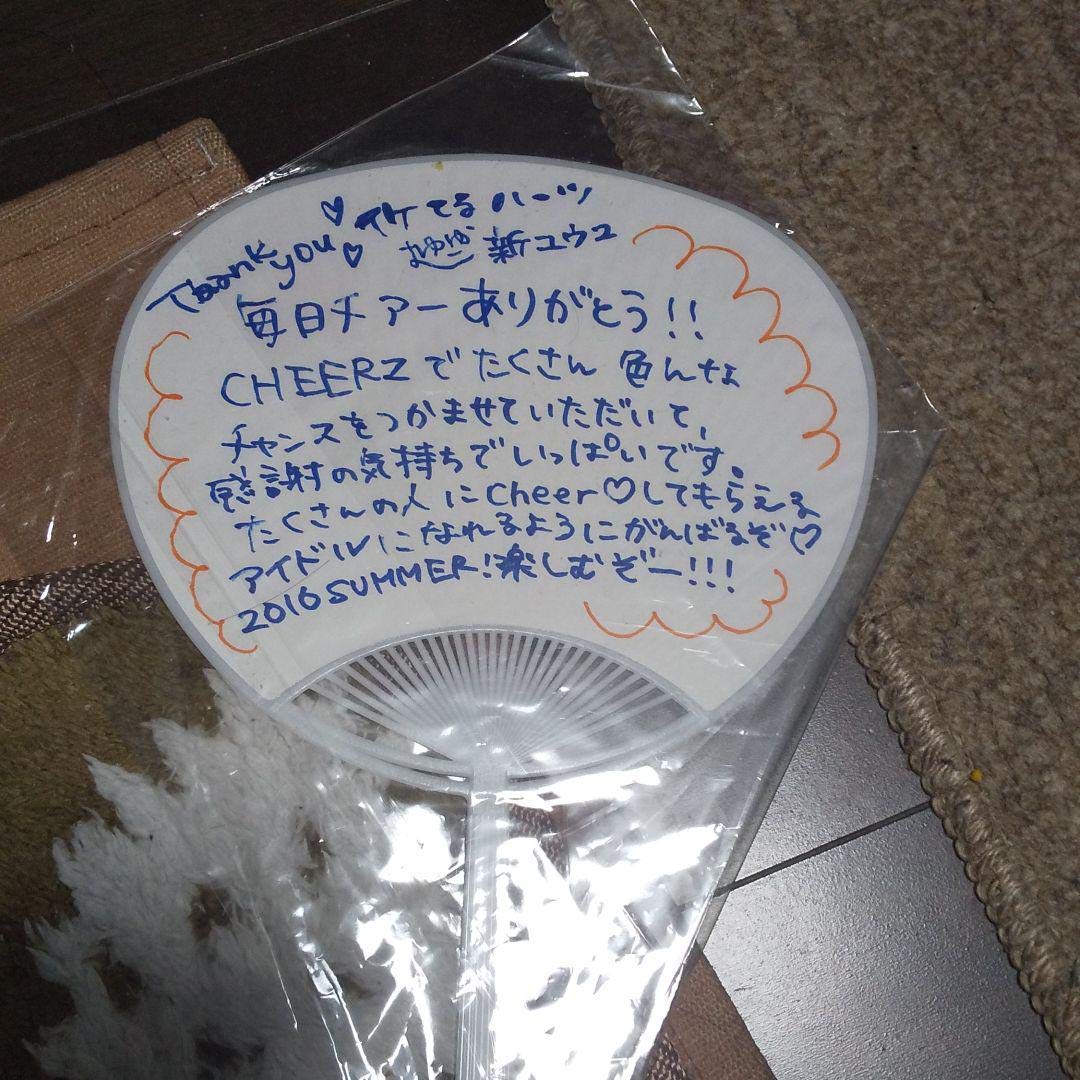 Thank you♡♡
イケてるハーツ
新ユウユ
毎日チアーありがとう!!
CHEERZでたくさん 色んな
チャンスをつかませていただいて、
感謝の気持ちでいっぱいです。
たくさんの人にcheer♡してもらえる
アイドルになれるようにがんばるぞ♡
2016 SUMMER!楽しむぞー!!!